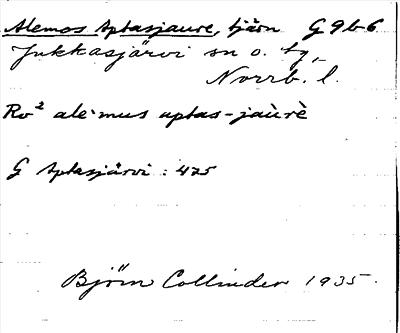 Alemos Aptasjaure, tjärn G 9 b 6
Jukkasjärvi sn o. tg,
Norrb. l.
Rv² ale·mus aptas-jaùrè
G Aptasjärvi : 475
Björn Collinder 1935.